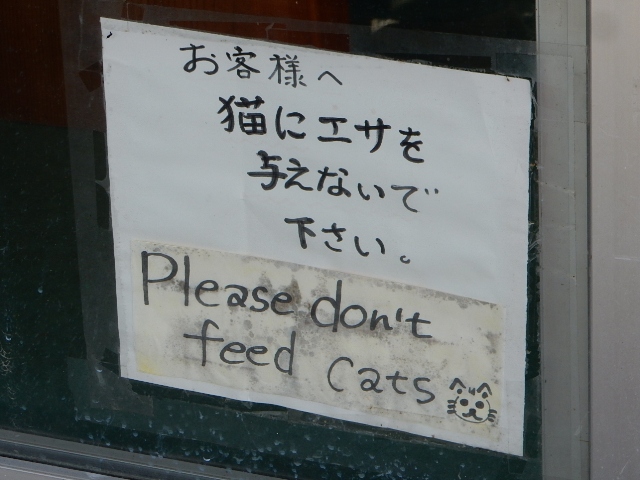 お客様へ
猫にエサを
与えないで
下さい。
Please don't
feed cats